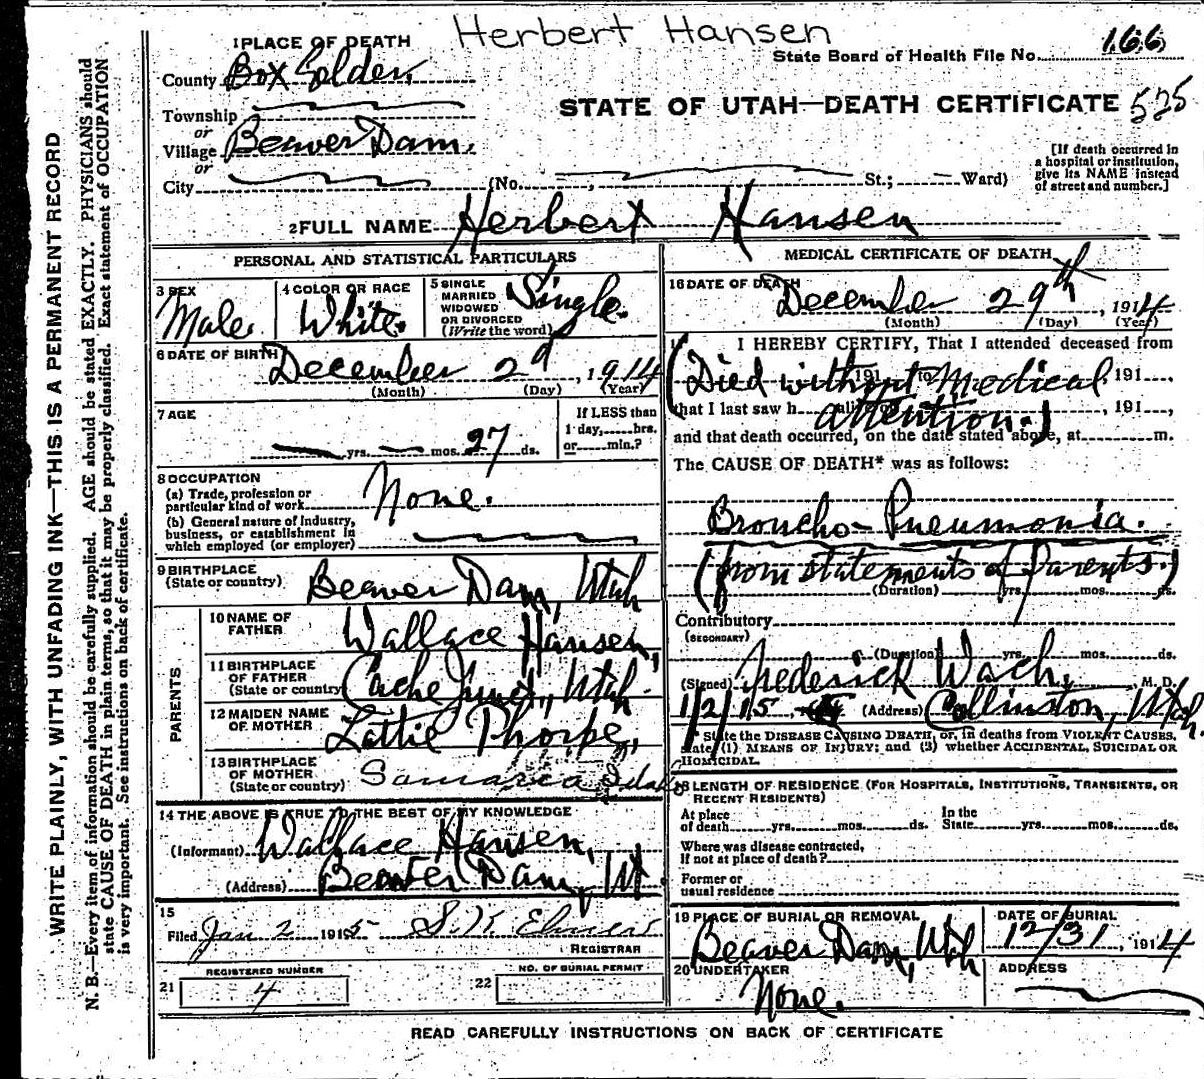 Herbert Hansen
1 PLACE OF DEATH
State Board of Health File No. 166
County Box Elder,
STATE OF UTAH—DEATH CERTIFICATE 525
Township
or
Village Beaver Dam.
or
City (No. , St.; Ward)
[If death occurred in
a hospital or institution,
give its NAME instead
of street and number.]
2 FULL NAME Herbert Hansen
PERSONAL AND STATISTICAL PARTICULARS
3 SEX
Male.
4 COLOR OR RACE
White.
5 SINGLE
MARRIED
WIDOWED
OR DIVORCED
(Write the word)
Single.
6 DATE OF BIRTH
December 2d, 1914
(Month) (Day) (Year)
7 AGE
yrs. mos. 27 ds.
If LESS than
1 day, hrs.
or min.?
8 OCCUPATION
(a) Trade, profession or
particular kind of work None.
(b) General nature of industry,
business, or establishment in
which employed (or employer)
9 BIRTHPLACE
(State or country) Beaver Dam, Utah
PARENTS
10 NAME OF
FATHER Wallace Hansen,
11 BIRTHPLACE
OF FATHER
(State or country) Cache Junct, Utah.
12 MAIDEN NAME
OF MOTHER Lottie Thorpe,
13 BIRTHPLACE
OF MOTHER
(State or country) Samaria Idaho
14 THE ABOVE IS TRUE TO THE BEST OF MY KNOWLEDGE
(Informant) Wallace Hansen,
(Address) Beaver Dam, Ut.
15
Filed Jan 2 1915
REGISTRAR
REGISTERED NUMBER
21 4
NO. OF BURIAL PERMIT
22
MEDICAL CERTIFICATE OF DEATH
16 DATE OF DEATH
December 29th, 1914
(Month) (Day) (Year)
I HEREBY CERTIFY, That I attended deceased from
(Died without Medical 191 , to 191 ,
that I last saw h alive on attention.) , 191 ,
and that death occurred, on the date stated above, at m.
The CAUSE OF DEATH* was as follows:
Broncho-Pneumonia.
(from statements of Parents.)
(Duration) yrs. mos. ds.
Contributory
(SECONDARY)
(Duration) yrs. mos. ds.
(Signed) Frederick Wach, M. D.
1/2/15, (Address) Collinston, Utah.
State the DISEASE CAUSING DEATH, or, in deaths from VIOLENT CAUSES,
state (1) MEANS OF INJURY; and (2) whether ACCIDENTAL, SUICIDAL OR
HOMICIDAL.
18 LENGTH OF RESIDENCE (FOR HOSPITALS, INSTITUTIONS, TRANSIENTS, OR
RECENT RESIDENTS)
At place
of death yrs. mos. ds.
In the
State yrs. mos. ds.
Where was disease contracted,
if not at place of death?
Former or
usual residence
19 PLACE OF BURIAL OR REMOVAL
Beaver Dam, Utah
DATE OF BURIAL
12/31, 1914
20 UNDERTAKER
None.
ADDRESS
READ CAREFULLY INSTRUCTIONS ON BACK OF CERTIFICATE
WRITE PLAINLY, WITH UNFADING INK—THIS IS A PERMANENT RECORD
N. B.—Every item of information should be carefully supplied. AGE should be stated EXACTLY. PHYSICIANS should
state CAUSE OF DEATH in plain terms, so that it may be properly classified. Exact statement of OCCUPATION
is very important. See instructions on back of certificate.